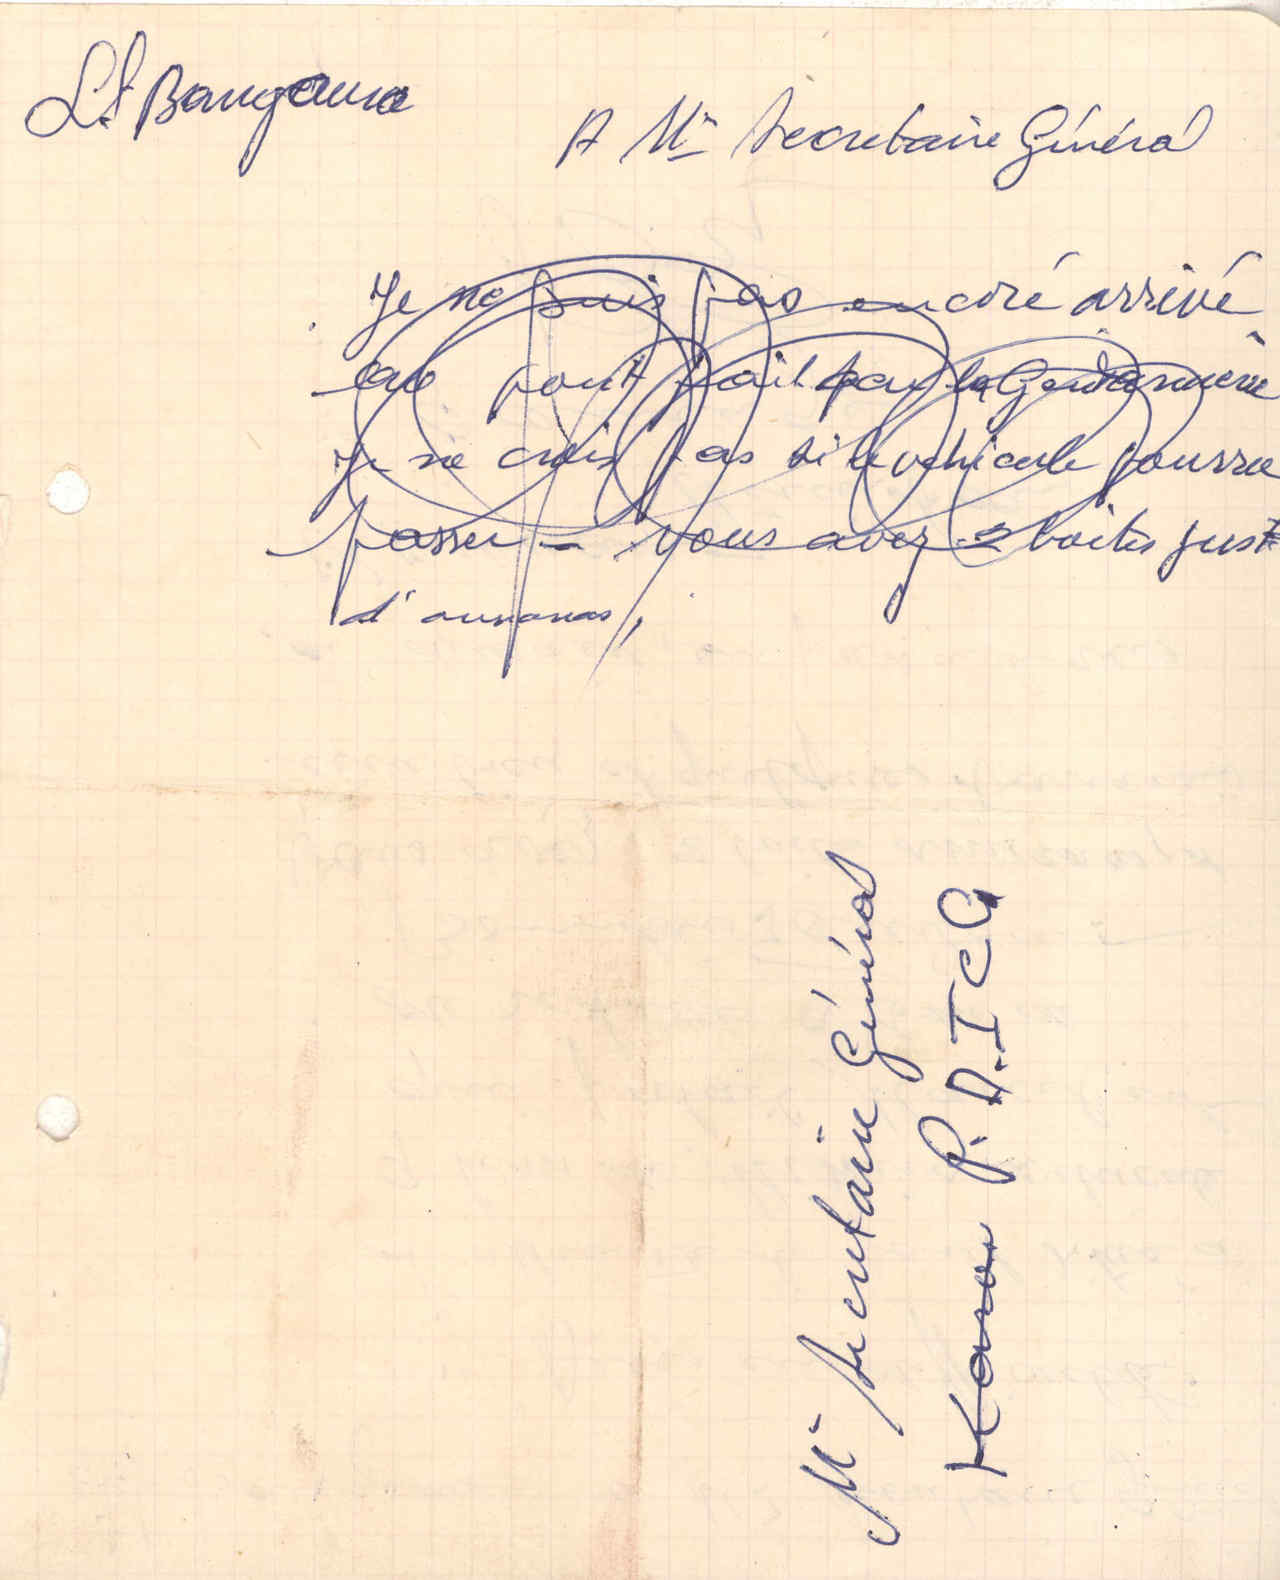 Lt Bangoura
A Mr Secretaire Général
Je ne suis pas encoré arrivé
au pont fait par la Gendarmerie
Je ne crois pas si le vehicule pourra
passer - vous avez 2 boites just
d'annanas,
Mr Secretaire Général
P.A.I.C.G